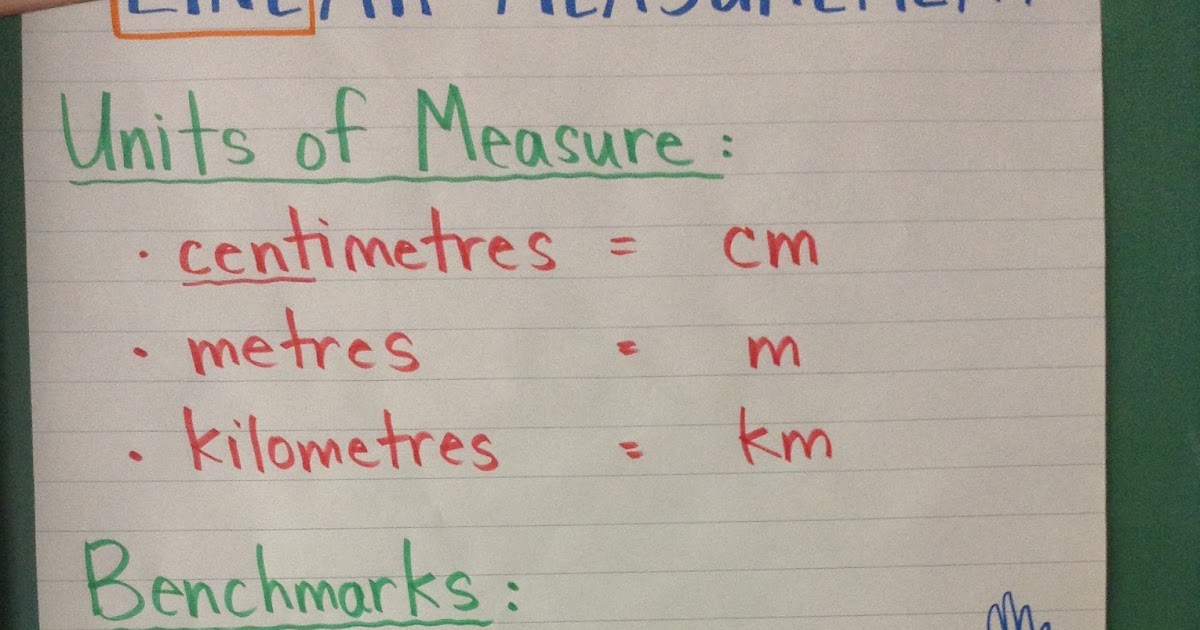 LINEAR MEASUREMENT
Units of Measure:
· centimetres = cm
· metres = m
· kilometres = km
Benchmarks: